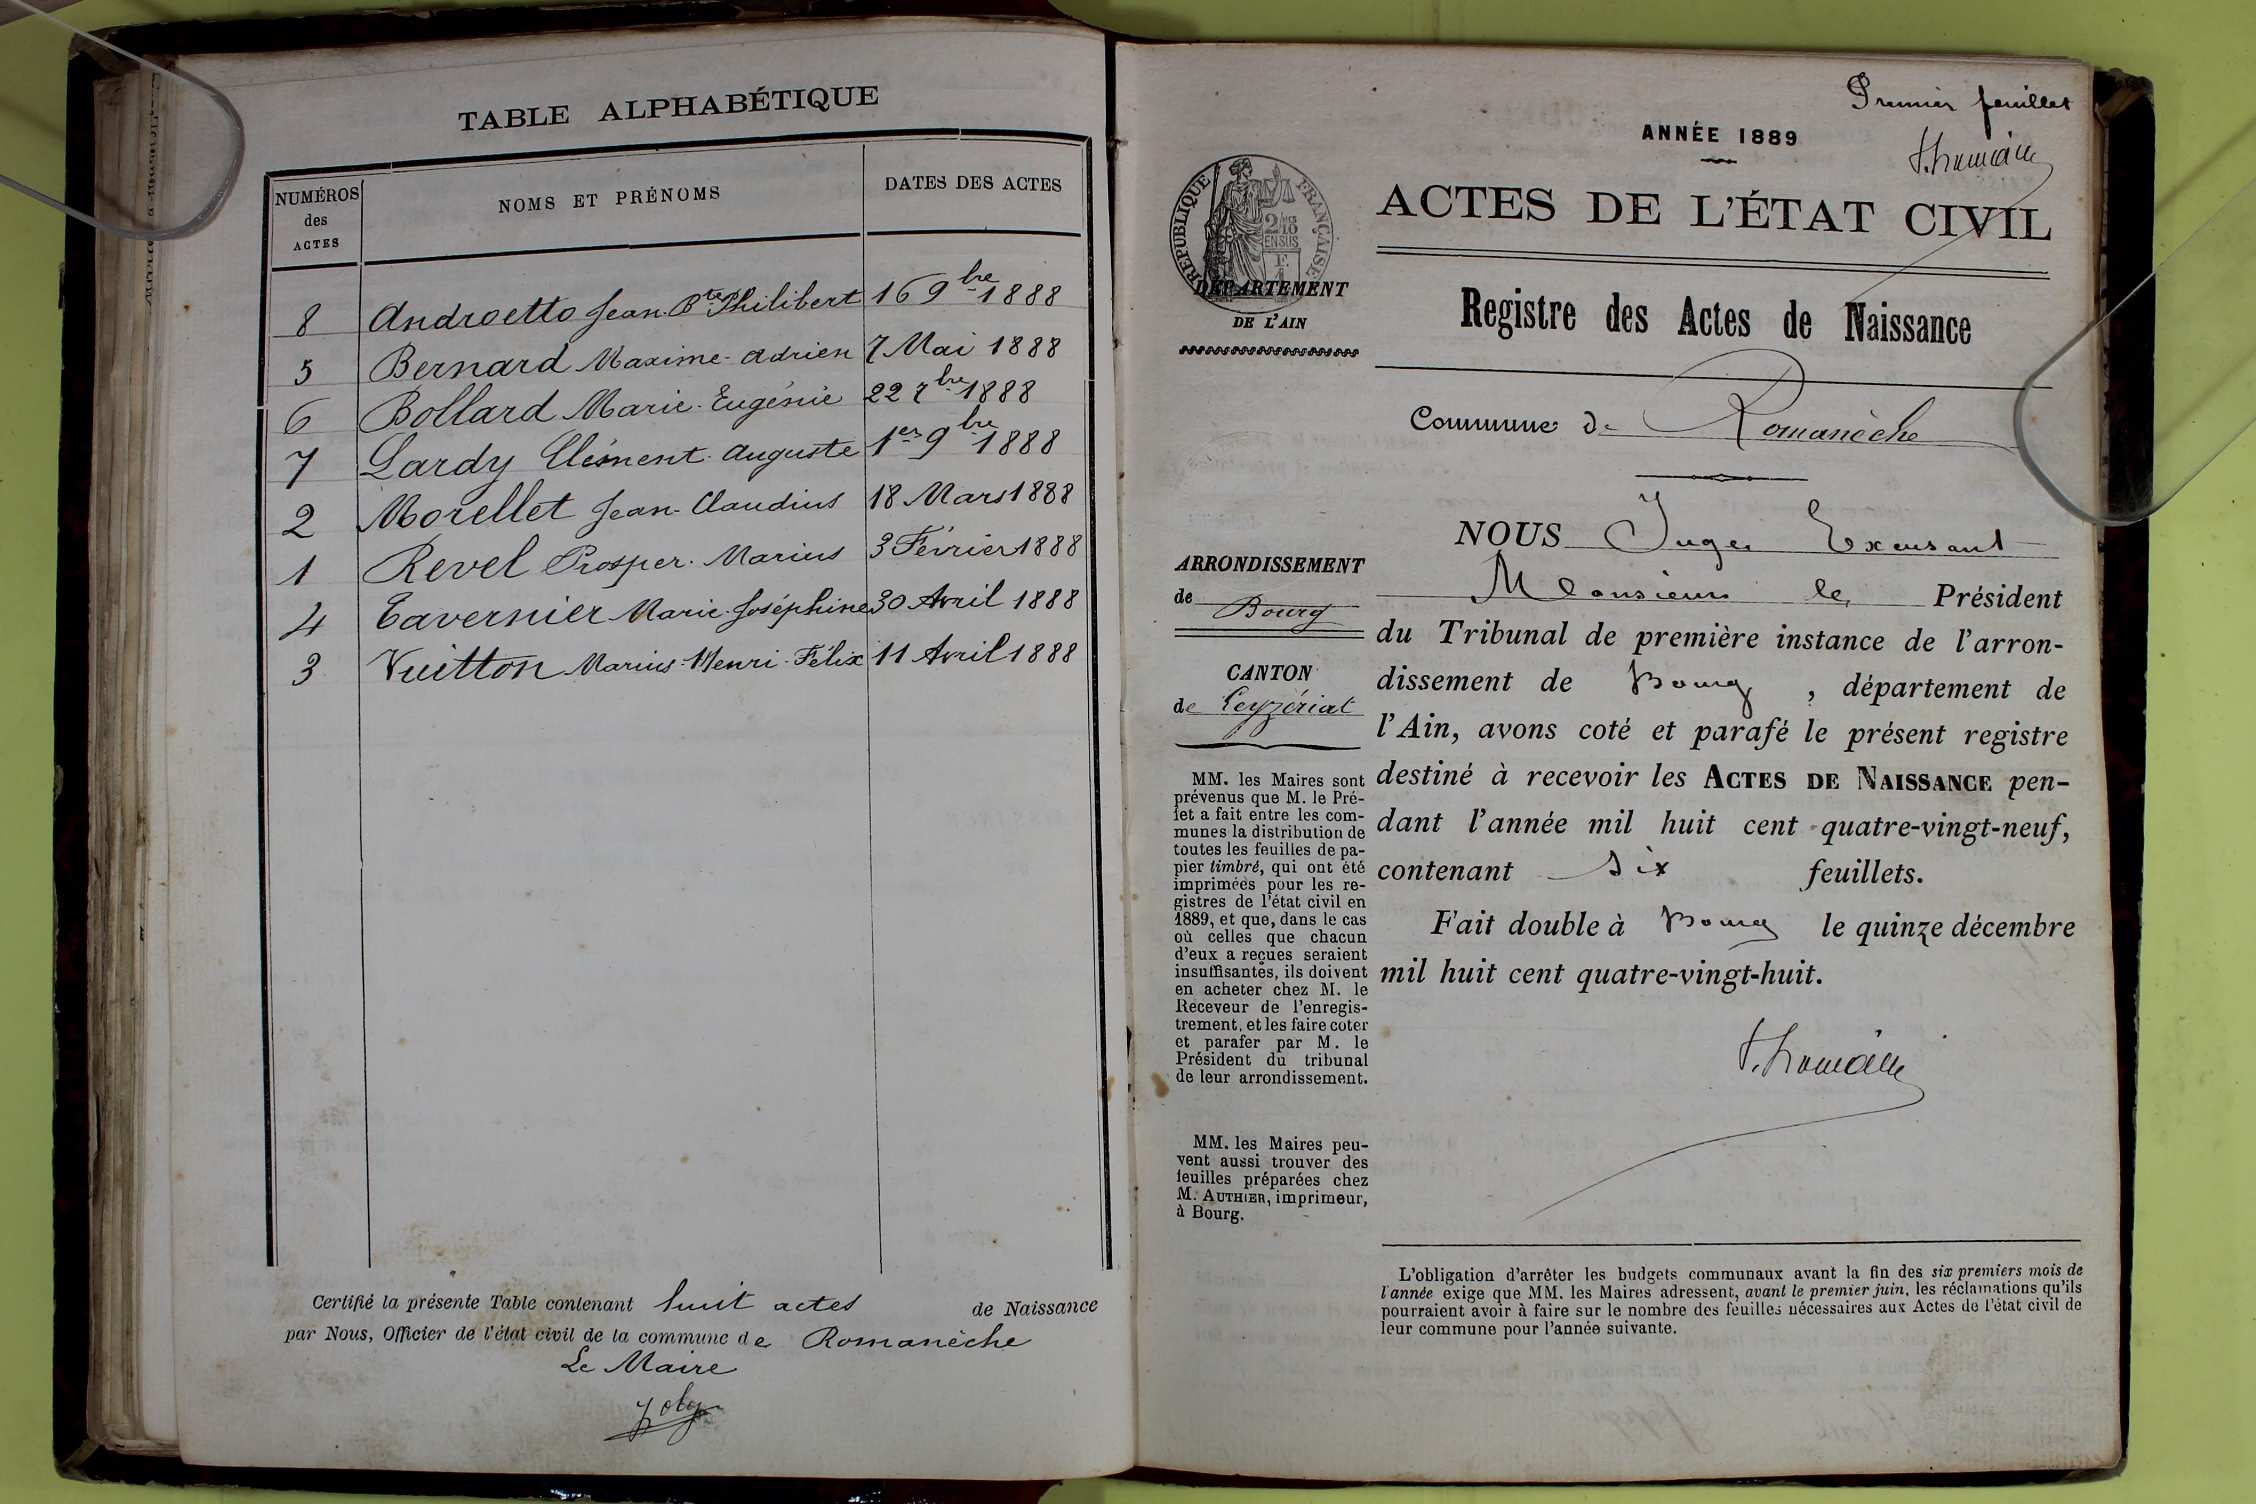 TABLE ALPHABÉTIQUE
NUMÉROS des ACTES | NOMS ET PRÉNOMS | DATES DES ACTES
8 Androetto Jean-Bte Philibert 16 9bre 1888
5 Bernard Maxime-Adrien 7 Mai 1888
6 Bollard Marie-Eugénie 22 7bre 1888
7 Lardy Clément-Auguste 1er 9bre 1888
2 Morellet Jean-Claudius 18 Mars 1888
1 Revel Prosper-Marius 3 Février 1888
4 Tavernier Marie-Joséphine 30 Avril 1888
3 Vuitton Marius-Henri-Félix 11 Avril 1888
Certifié la présente Table contenant huit actes de Naissance
par Nous, Officier de l'état civil de la commune de Romanèche
Le Maire
Joly
Premier feuillet
ANNÉE 1889
ACTES DE L'ÉTAT CIVIL
RÉPUBLIQUE FRANÇAISE
DÉPARTEMENT
DE L'AIN
Registre des Actes de Naissance
Commune de Romanèche
ARRONDISSEMENT
de Bourg
CANTON
de Ceyzériat
MM. les Maires sont
prévenus que M. le Pré-
fet a fait entre les com-
munes la distribution de
toutes les feuilles de pa-
pier timbré, qui ont été
imprimées pour les re-
gistres de l'état civil en
1889, et que, dans le cas
où celles que chacun
d'eux a reçues seraient
insuffisantes, ils doivent
en acheter chez M. le
Receveur de l'enregis-
trement, et les faire coter
et parafer par M. le
Président du tribunal
de leur arrondissement.
MM. les Maires peu-
vent aussi trouver des
feuilles préparées chez
M. AUTHIER, imprimeur,
à Bourg.
NOUS Juge Excusant
Monsieur le Président
du Tribunal de première instance de l'arron-
dissement de Bourg, département de
l'Ain, avons coté et parafé le présent registre
destiné à recevoir les ACTES DE NAISSANCE pen-
dant l'année mil huit cent quatre-vingt-neuf,
contenant six feuillets.
Fait double à Bourg le quinze décembre
mil huit cent quatre-vingt-huit.
L'obligation d'arrêter les budgets communaux avant la fin des six premiers mois de
l'année exige que MM. les Maires adressent, avant le premier juin, les réclamations qu'ils
pourraient avoir à faire sur le nombre des feuilles nécessaires aux Actes de l'état civil de
leur commune pour l'année suivante.